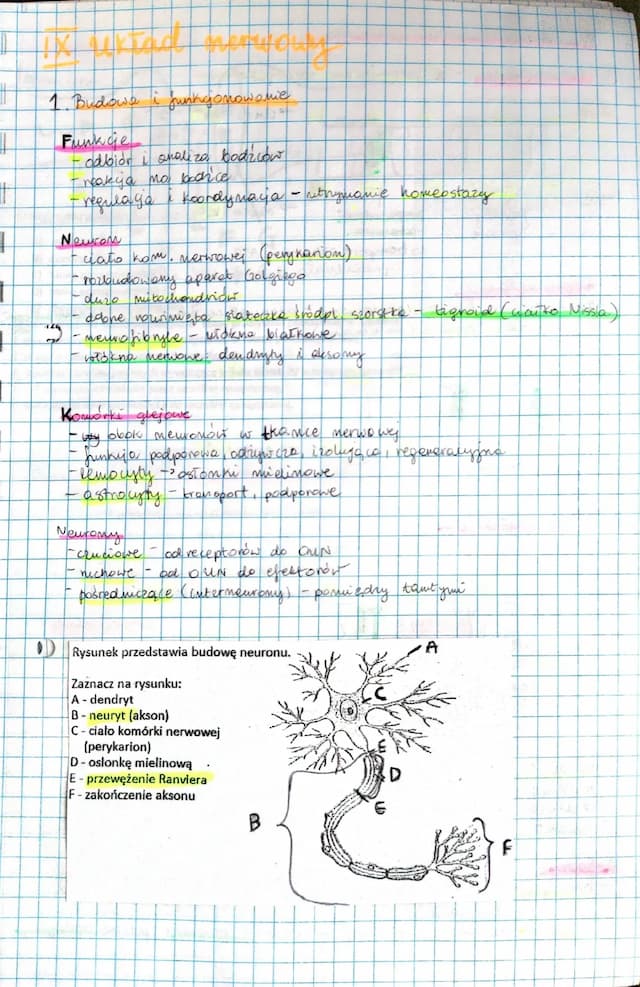 IX układ nerwowy
1. Budowa i funkcjonowanie
Funkcje
- odbiór i analiza bodźców
- reakcja na bodźce
- regulacja i koordynacja - utrzymanie homeostazy
Neuron
- ciało kom. nerwowej (perykarion)
- rozbudowany aparat Golgiego
- dużo mitochondriów
- dobrze rozwinięta siateczka śródpl. szorstka - tigroid (ciałka Nissla)
- neurofibryle - włókna białkowe
- włókna nerwowe: dendryty i aksony
Komórki glejowe
- obok neuronów w tkance nerwowej
- funkcja podporowa, odżywcza, izolująca, regeneracyjna
- lemocyty → osłonki mielinowe
- astrocyty - transport, podporowe
Neurony
- czuciowe - od receptorów do OUN
- ruchowe - od OUN do efektorów
- pośredniczące (interneurony) - pomiędzy tamtymi
1) Rysunek przedstawia budowę neuronu.
Zaznacz na rysunku:
A - dendryt
B - neuryt (akson)
C - ciało komórki nerwowej
(perykarion)
D - osłonkę mielinową
E - przewężenie Ranviera
F - zakończenie aksonu
A
C
E
D
E
B
F